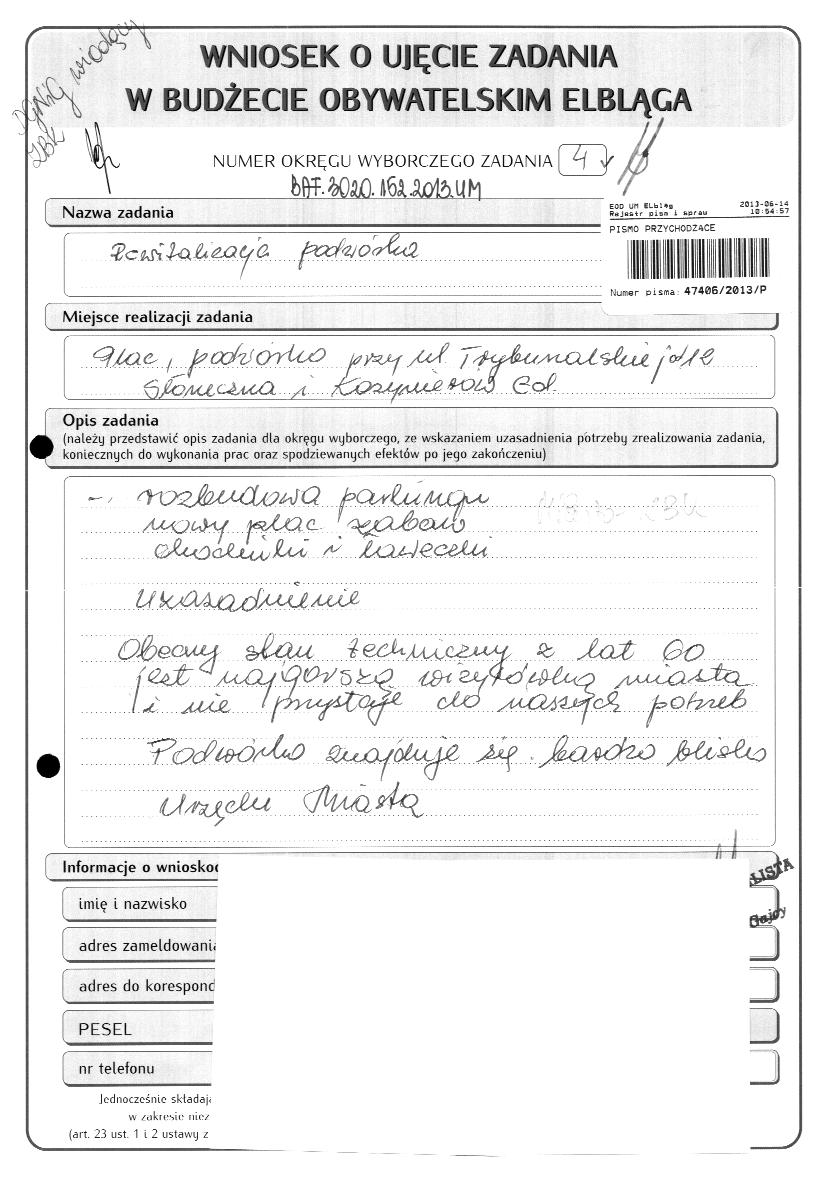 DGNiG wiodący
ZBK
WNIOSEK O UJĘCIE ZADANIA
W BUDŻECIE OBYWATELSKIM ELBLĄGA
NUMER OKRĘGU WYBORCZEGO ZADANIA 4
BAF.3020.162.2013.UM
EOD UM ELbląg 2013-06-14
Rejestr pism i spraw 10:54:57
PISMO PRZYCHODZĄCE
Numer pisma: 47406/2013/P
Nazwa zadania
Rewitalizacja podwórka
Miejsce realizacji zadania
Plac, podwórko przy ul Trybunalskiej
Słoneczna i
Opis zadania
(należy przedstawić opis zadania dla okręgu wyborczego, ze wskazaniem uzasadnienia potrzeby zrealizowania zadania,
koniecznych do wykonania prac oraz spodziewanych efektów po jego zakończeniu)
- rozbudowa parkingu
nowy plac zabaw
chodniki i ławeczki
Uzasadnienie
Obecny stan techniczny z lat 60
jest najgorszą wizytówką miasta
i nie przystaje do naszych potrzeb
Podwórko znajduje się bardzo blisko
Urzędu Miasta
Informacje o wniosko
imię i nazwisko
adres zameldowania
adres do korespond
PESEL
nr telefonu
LISTA
Jednocześnie składaj
w zakresie niez
(art. 23 ust. 1 i 2 ustawy z